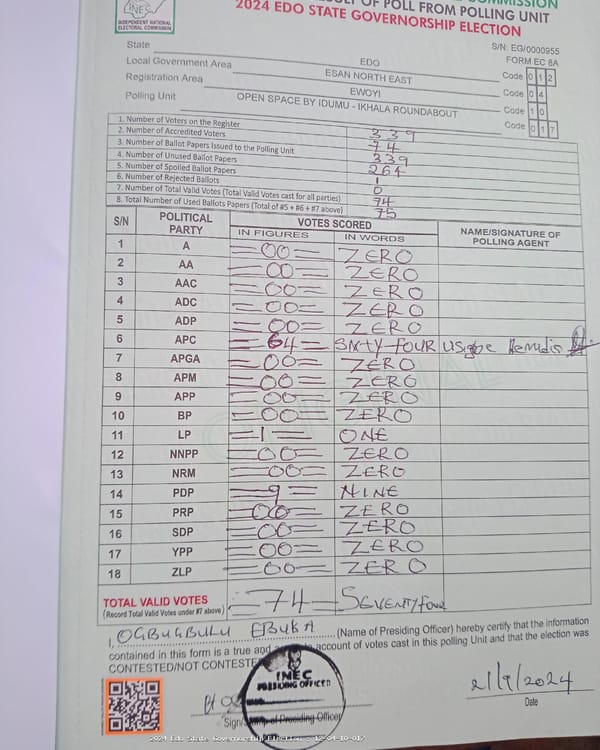 INEC
INDEPENDENT NATIONAL
ELECTORAL COMMISSION
OF POLL FROM POLLING UNIT
2024 EDO STATE GOVERNORSHIP ELECTION
S/N: EG/0000955
FORM EC 8A
State EDO Code 0 1 2
Local Government Area ESAN NORTH EAST Code 0 4
Registration Area EWOYI Code 1 0
Polling Unit OPEN SPACE BY IDUMU - IKHALA ROUNDABOUT Code 0 1 7
1. Number of Voters on the Register 339
2. Number of Accredited Voters 74
3. Number of Ballot Papers Issued to the Polling Unit 339
4. Number of Unused Ballot Papers 264
5. Number of Spoiled Ballot Papers 1
6. Number of Rejected Ballots 0
7. Number of Total Valid Votes (Total Valid Votes cast for all parties) 74
8. Total Number of Used Ballots Papers (Total of #5 + #6 + #7 above) 75
S/N POLITICAL PARTY VOTES SCORED NAME/SIGNATURE OF POLLING AGENT
IN FIGURES IN WORDS
1 A =00= ZERO
2 AA =00= ZERO
3 AAC =00= ZERO
4 ADC =00= ZERO
5 ADP =00= ZERO
6 APC =64= SIXTY FOUR
7 APGA =00= ZERO
8 APM =00= ZERO
9 APP =00= ZERO
10 BP =00= ZERO
11 LP =1= ONE
12 NNPP =00= ZERO
13 NRM =00= ZERO
14 PDP =9= NINE
15 PRP =00= ZERO
16 SDP =00= ZERO
17 YPP =00= ZERO
18 ZLP =00= ZERO
TOTAL VALID VOTES =74= SEVENTY FOUR
(Record Total Valid Votes under #7 above)
I, OGBUGBULU EBUKA (Name of Presiding Officer) hereby certify that the information
contained in this form is a true and account of votes cast in this polling Unit and that the election was
CONTESTED/NOT CONTESTED
INEC
PRESIDING OFFICER
21/9/2024
Date
of Presiding Officer
2024 Edo State Governorship Election - 12-04-10-017